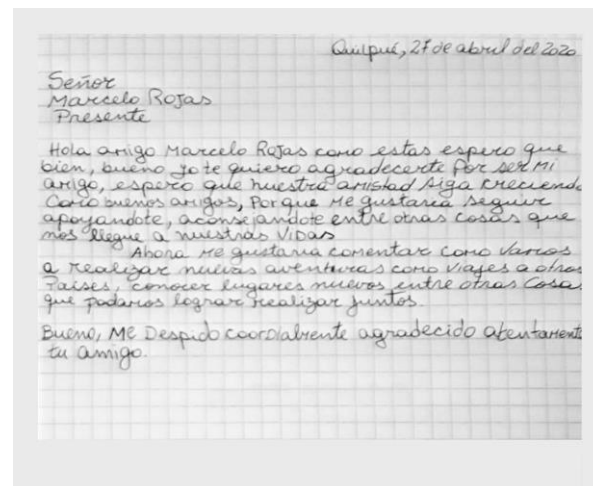 Quilpué, 27 de abril del 2020
Señor
Marcelo Rojas
Presente
Hola amigo Marcelo Rojas como estas espero que
bien, bueno yo te quiero agradecerte por ser mi
amigo, espero que nuestra amistad siga creciendo
como buenos amigos, porque me gustaria seguir
apoyandote, aconsejandote entre otras cosas que
nos llegue a nuestras vidas
Ahora me gustaria comentar como vamos
a realizar nuevas aventuras como viajes a otros
Paises, conocer lugares nuevos entre otras cosas
que podamos lograr realizar juntos.
Bueno, me Despido coordialmente agradecido atentamente
tu amigo.